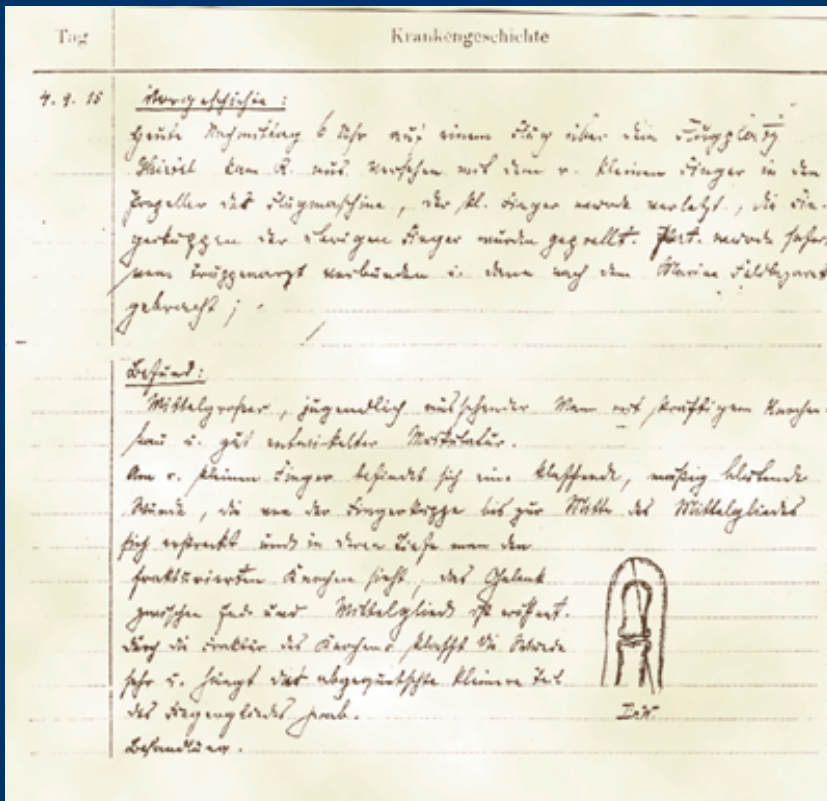 Tag Krankengeschichte
4.9.15 Vorgeschichte:
Heute Nachmittag 6 Uhr auf einem Flug über den Flugplatz
kam P. aus Versehen mit dem r. kleinen Finger in den
Propeller der Flugmaschine, der kl. Finger wurde verletzt, die Fin-
gerkuppen der übrigen Finger wurden geprellt. Pat. wurde sofort
vom Truppenarzt verbunden u. dann nach dem Marine Feldlazarett
gebracht;
Befund:
Mittelgrosser, jugendlich aussehender Mann mit kräftigem Knochen-
bau u. gut entwickelter Muskulatur.
Am r. kleinen Finger befindet sich eine klaffende, mäßig blutende
Wunde, die von der Fingerkuppe bis zur Mitte des Mittelgliedes
sich erstreckt und in deren Tiefe man den
frakturierten Knochen sieht, das Gelenk
zwischen End- und Mittelglied ist eröffnet.
Durch die Fraktur des Knochens klafft die Wunde
sehr u. hängt das abgequetschte kleinere Teil
des Fingergliedes herab.
Behandlung.